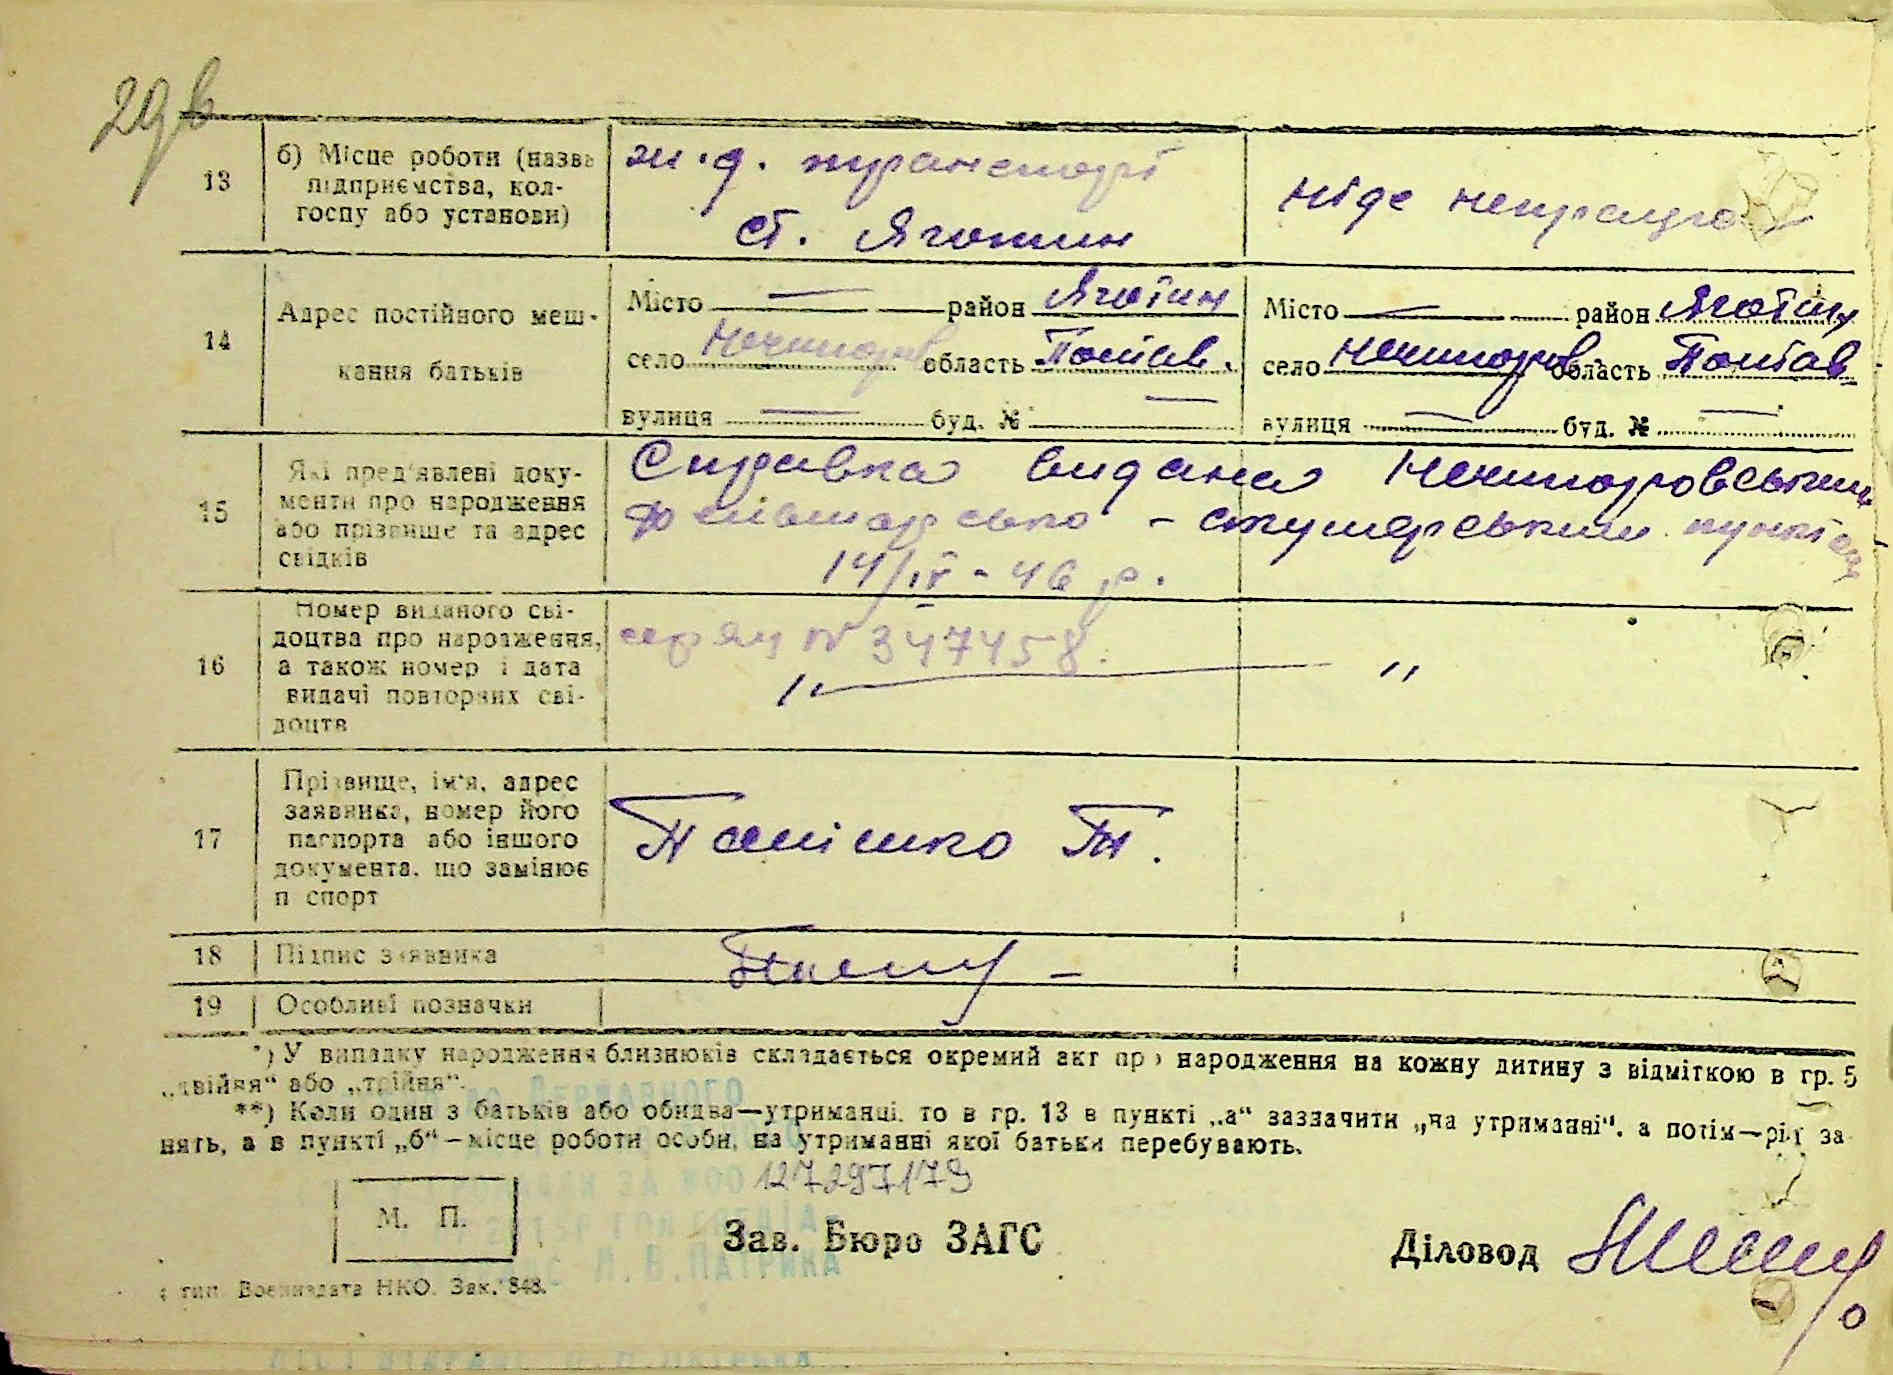 29 в
13
б) Місце роботи (назва
підприємства, кол-
госпу або установи)
ж. д. транспорті
ст. Яготин
ніде непрацює
14
Адрес постійного меш-
кання батьків
Місто — район Яготин
село Нечипорів область Полтав.
вулиця — буд. № —
Місто — район Яготин
село Нечипорів область Полтав
вулиця — буд. № —
15
Які пред'явлені доку-
менти про народження
або прізвище та адрес
свідків
Справка видана Нечипоровським
Фельшарсько - акушерським пунктом
14/IV - 46 р.
16
Номер виданого сві-
доцтва про народження,
а також номер і дата
видачі повторних сві-
доцтв
серия № 347458.
" — "
17
Прізвище, ім'я, адрес
заявника, номер його
паспорта або іншого
документа, що замінює
п спорт
Папішко Т.
18
Підпис заявника
19
Особливі позначки
*) У випадку народження близнюків складається окремий акт про народження на кожну дитину з відміткою в гр. 5
„двійня“ або „трійня“.
**) Коли один з батьків або обидва—утриманці, то в гр. 13 в пункті „а“ зазначити „на утриманні“, а потім—рід за
нять, а в пункті „б“—місце роботи особи, на утриманні якої батьки перебувають.
127297179
М. П.
Зав. Бюро ЗАГС
Діловод
тип. Воениздата НКО. Зак. 848.